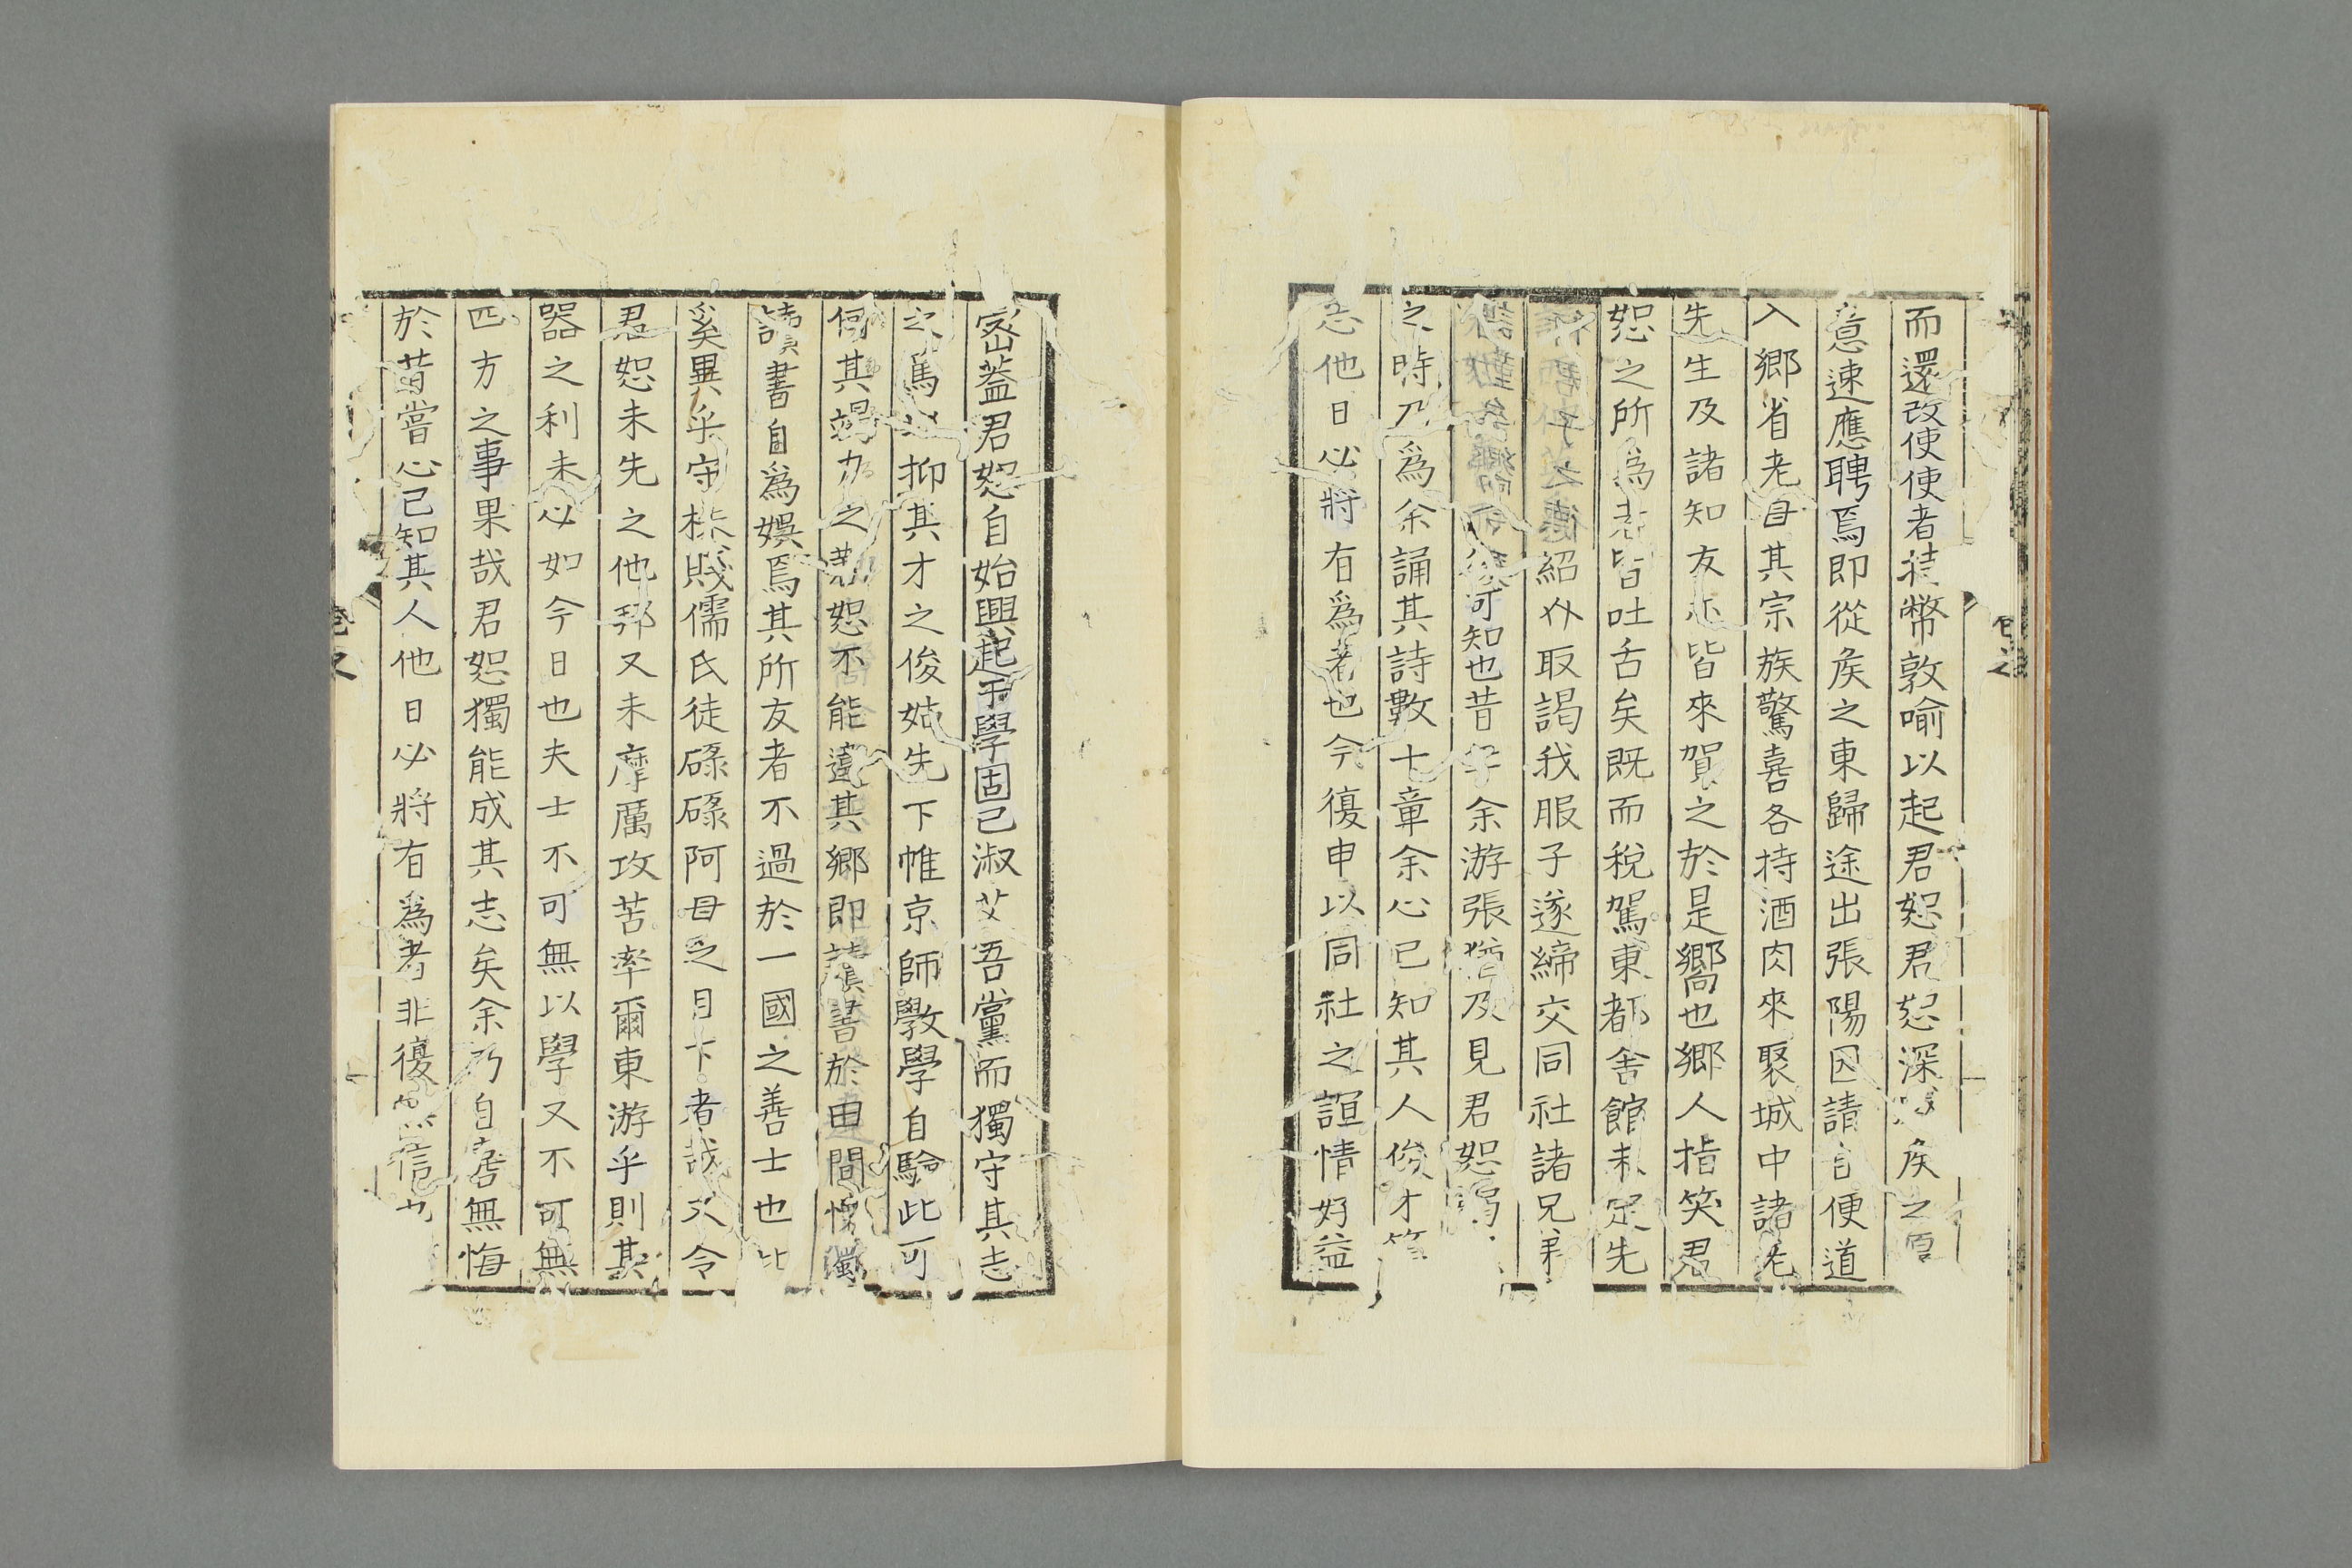 而還改使使者徒幣敦喻以起君恕君恕深感矦之厚
意速應聘焉即從矦之東歸途出張陽因請官便道
入鄉省老母其宗族驚喜各持酒肉來聚城中諸老
先生及諸知友亦皆來賀之於是嚮也鄉人指笑君
恕之所為者皆吐舌矣既而稅駕東都舍館未定先
紹介取謁我服子遂締交同社諸兄弟
可知也昔年余游張猶及見君恕弱
之時乃為余誦其詩數十章余心已知其人俊才
志他日必將有爲者也今復申以同社之誼情好益
密蓋君恕自始興起乎學固已淑艾吾黨而獨守其志
之篤以抑其才之俊姑先下帷京師斆學自驗此可
何其竭力之君恕不能違其鄉即讀書於田間
讀書自爲娯焉其所友者不過於一國之善士也此
奚異乎守株賤儒氏徒碌碌阿母之目下者哉又令
君恕未先之他邦又未摩厲攻苦率爾東游乎則其
器之利未必如今日也夫士不可無以學又不可無
四方之事果哉君恕獨能成其志矣余乃自居無悔
於昔嘗心已知其人他日必將有爲者非復無信也